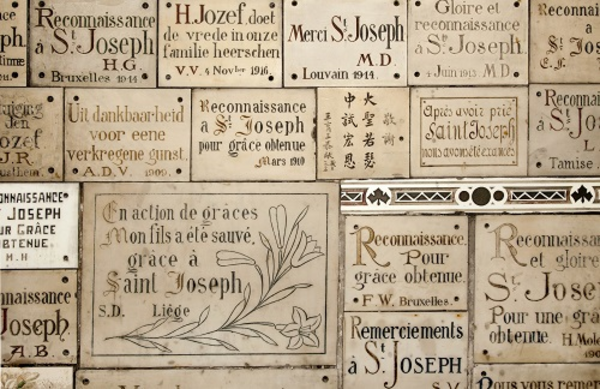 ph.
Reconnaissance
à St. Joseph
H.G.
Bruxelles 1914.
H. Jozef, doet
de vrede in onze
familie heerschen
V.V. 4 Novber 1916.
Merci St. Joseph
M.D.
Louvain 1914.
Gloire et
reconnaissance
à St. Joseph.
4 Juin 1913. M.D.
Reconnaissance
à
Jos
ozef
J.R.
Uit dankbaarheid
voor eene
verkregene gunst.
A.D.V. 1909.
Reconnaissance
à St. Joseph
pour grâce obtenue
Mars 1910
敬謝
大聖若瑟
中試宏恩
Après avoir prié
Saint Joseph
nous avons été exaucés
Reconnai
à St. Jos
L.
Tamise
ONNAISSANCE
T JOSEPH
UR GRÂCE
OBTENUE
M.H
nnaissance
Joseph.
A.B.
En action de grâces
Mon fils a été sauvé.
grâce à
Saint Joseph
S.D. Liége
Reconnaissance.
Pour
grâce obtenue.
F.W. Bruxelles.
Remerciements
à St. JOSEPH
Reconnaissan
et gloire
St. Jose
Pour une grâ
obtenue.
Pous vous remer